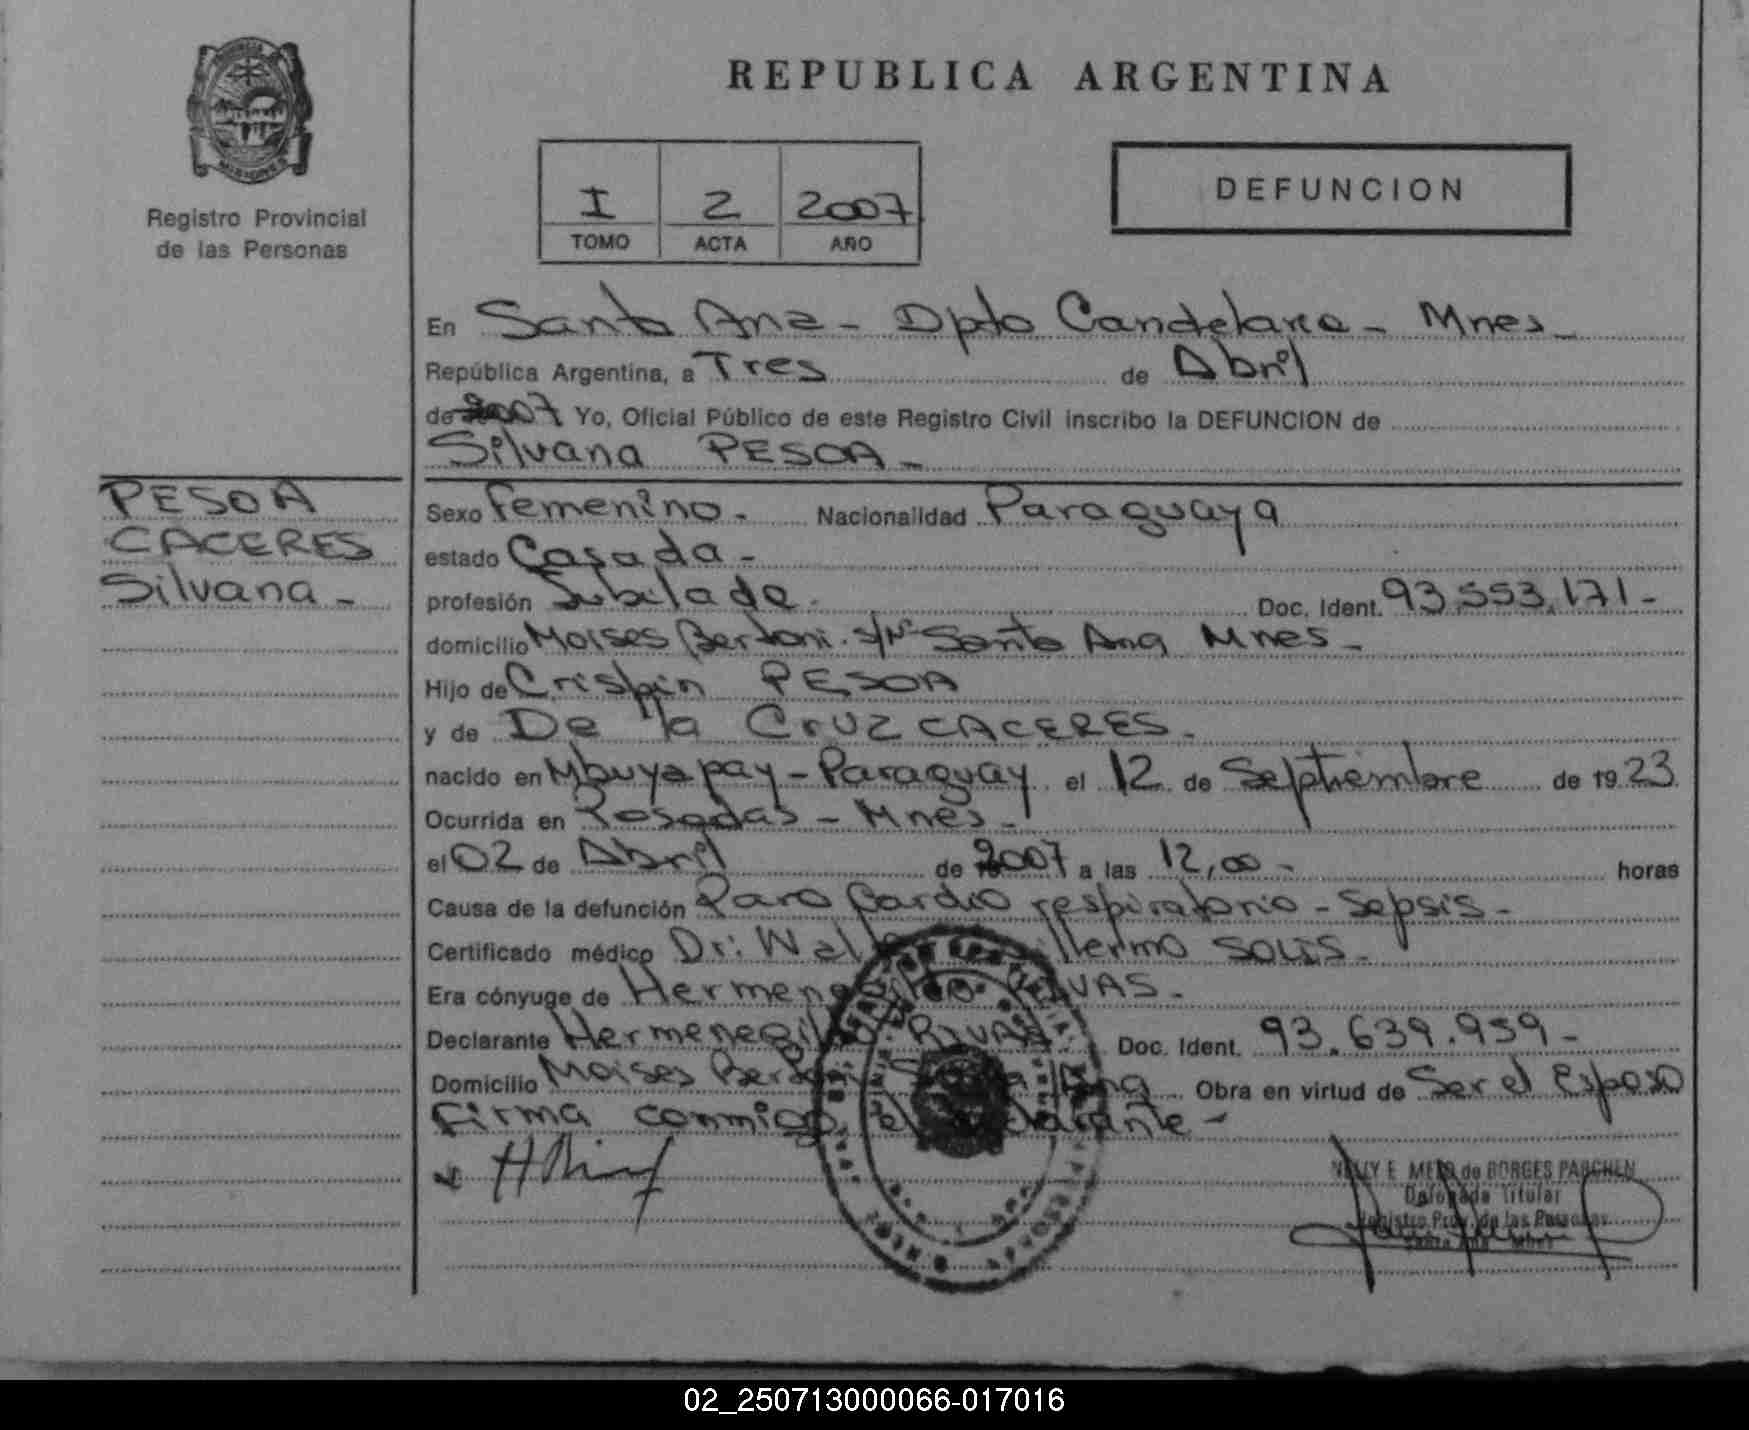 REPUBLICA ARGENTINA
Registro Provincial
de las Personas
I 2 2007
TOMO ACTA AÑO
DEFUNCION
En Santa Ana - Dpto Candelaria - Mnes -
República Argentina, a Tres de Abril
de 2007 Yo, Oficial Público de este Registro Civil inscribo la DEFUNCION de
Silvana PESOA -
PESOA
CACERES
Silvana -
Sexo femenino - Nacionalidad Paraguaya
estado Casada -
profesión Jubilada. Doc. Ident. 93.553.171 -
domicilio Moises Bertoni s/Nº Santa Ana Mnes -
Hijo de Crispin PESOA
y de De la Cruz CACERES.
nacido en Mbuyapay - Paraguay el 12 de Septiembre de 1923
Ocurrida en Posadas - Mnes -
el 02 de Abril de 2007 a las 12,00 - horas
Causa de la defunción Paro Cardio respiratorio - Sepsis -
Certificado médico Dr: SOLIS -
Era cónyuge de RIVAS -
Declarante RIVAS. Doc. Ident. 93.639.959 -
Domicilio Moises Bertoni Santa Ana Obra en virtud de Ser el Esposo
Firma conmigo el declarante -
NELLY E. MELO de BORGES PARCHEN
Delegada Titular
Registro Prov. de las Personas
Santa Ana Mnes
02_250713000066-017016